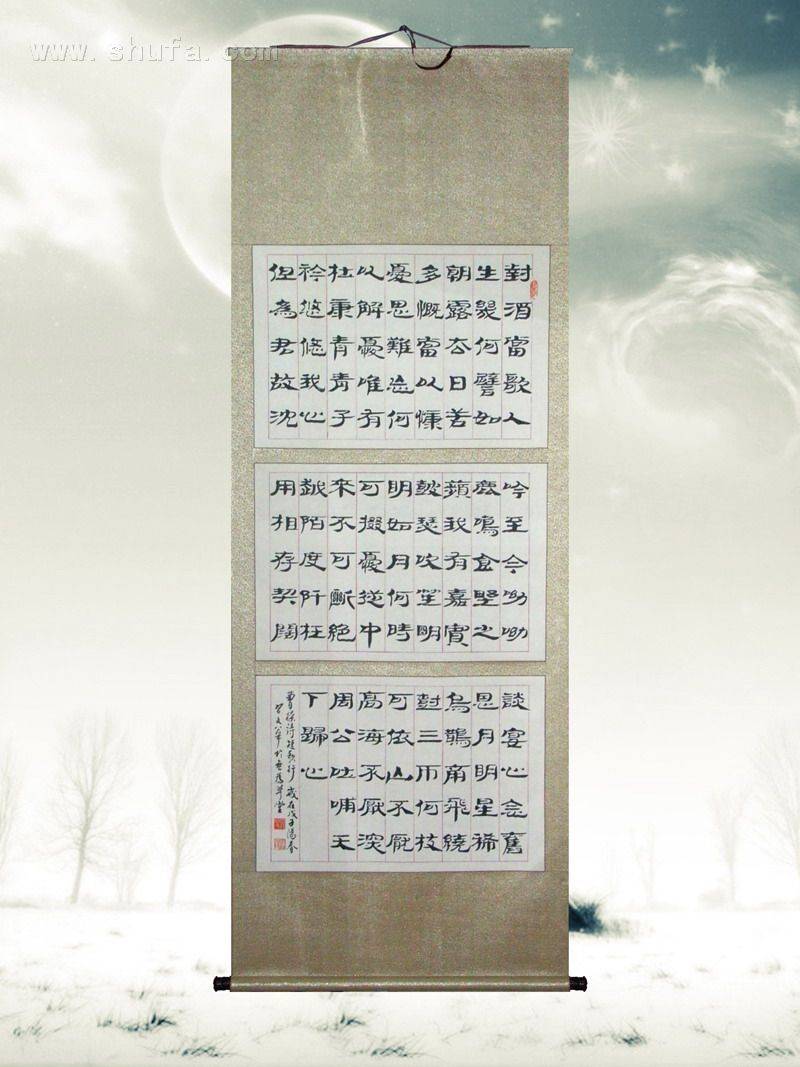 www.shufa.com
對酒當歌人
生幾何譬如
朝露去日苦
多慨當以慷
憂思難忘何
以解憂唯有
杜康青青子
衿悠悠我心
但為君故沈
吟至今呦呦
鹿鳴食野之
蘋我有嘉賓
鼓瑟吹笙明
明如月何時
可掇憂從中
來不可斷絕
越陌度阡枉
用相存契闊
談宴心念舊
恩月明星稀
烏鵲南飛繞
樹三帀何枝
可依山不厭
高海不厭深
周公吐哺天
下歸心
曹操詩短歌行歲在戊子陽春
草堂